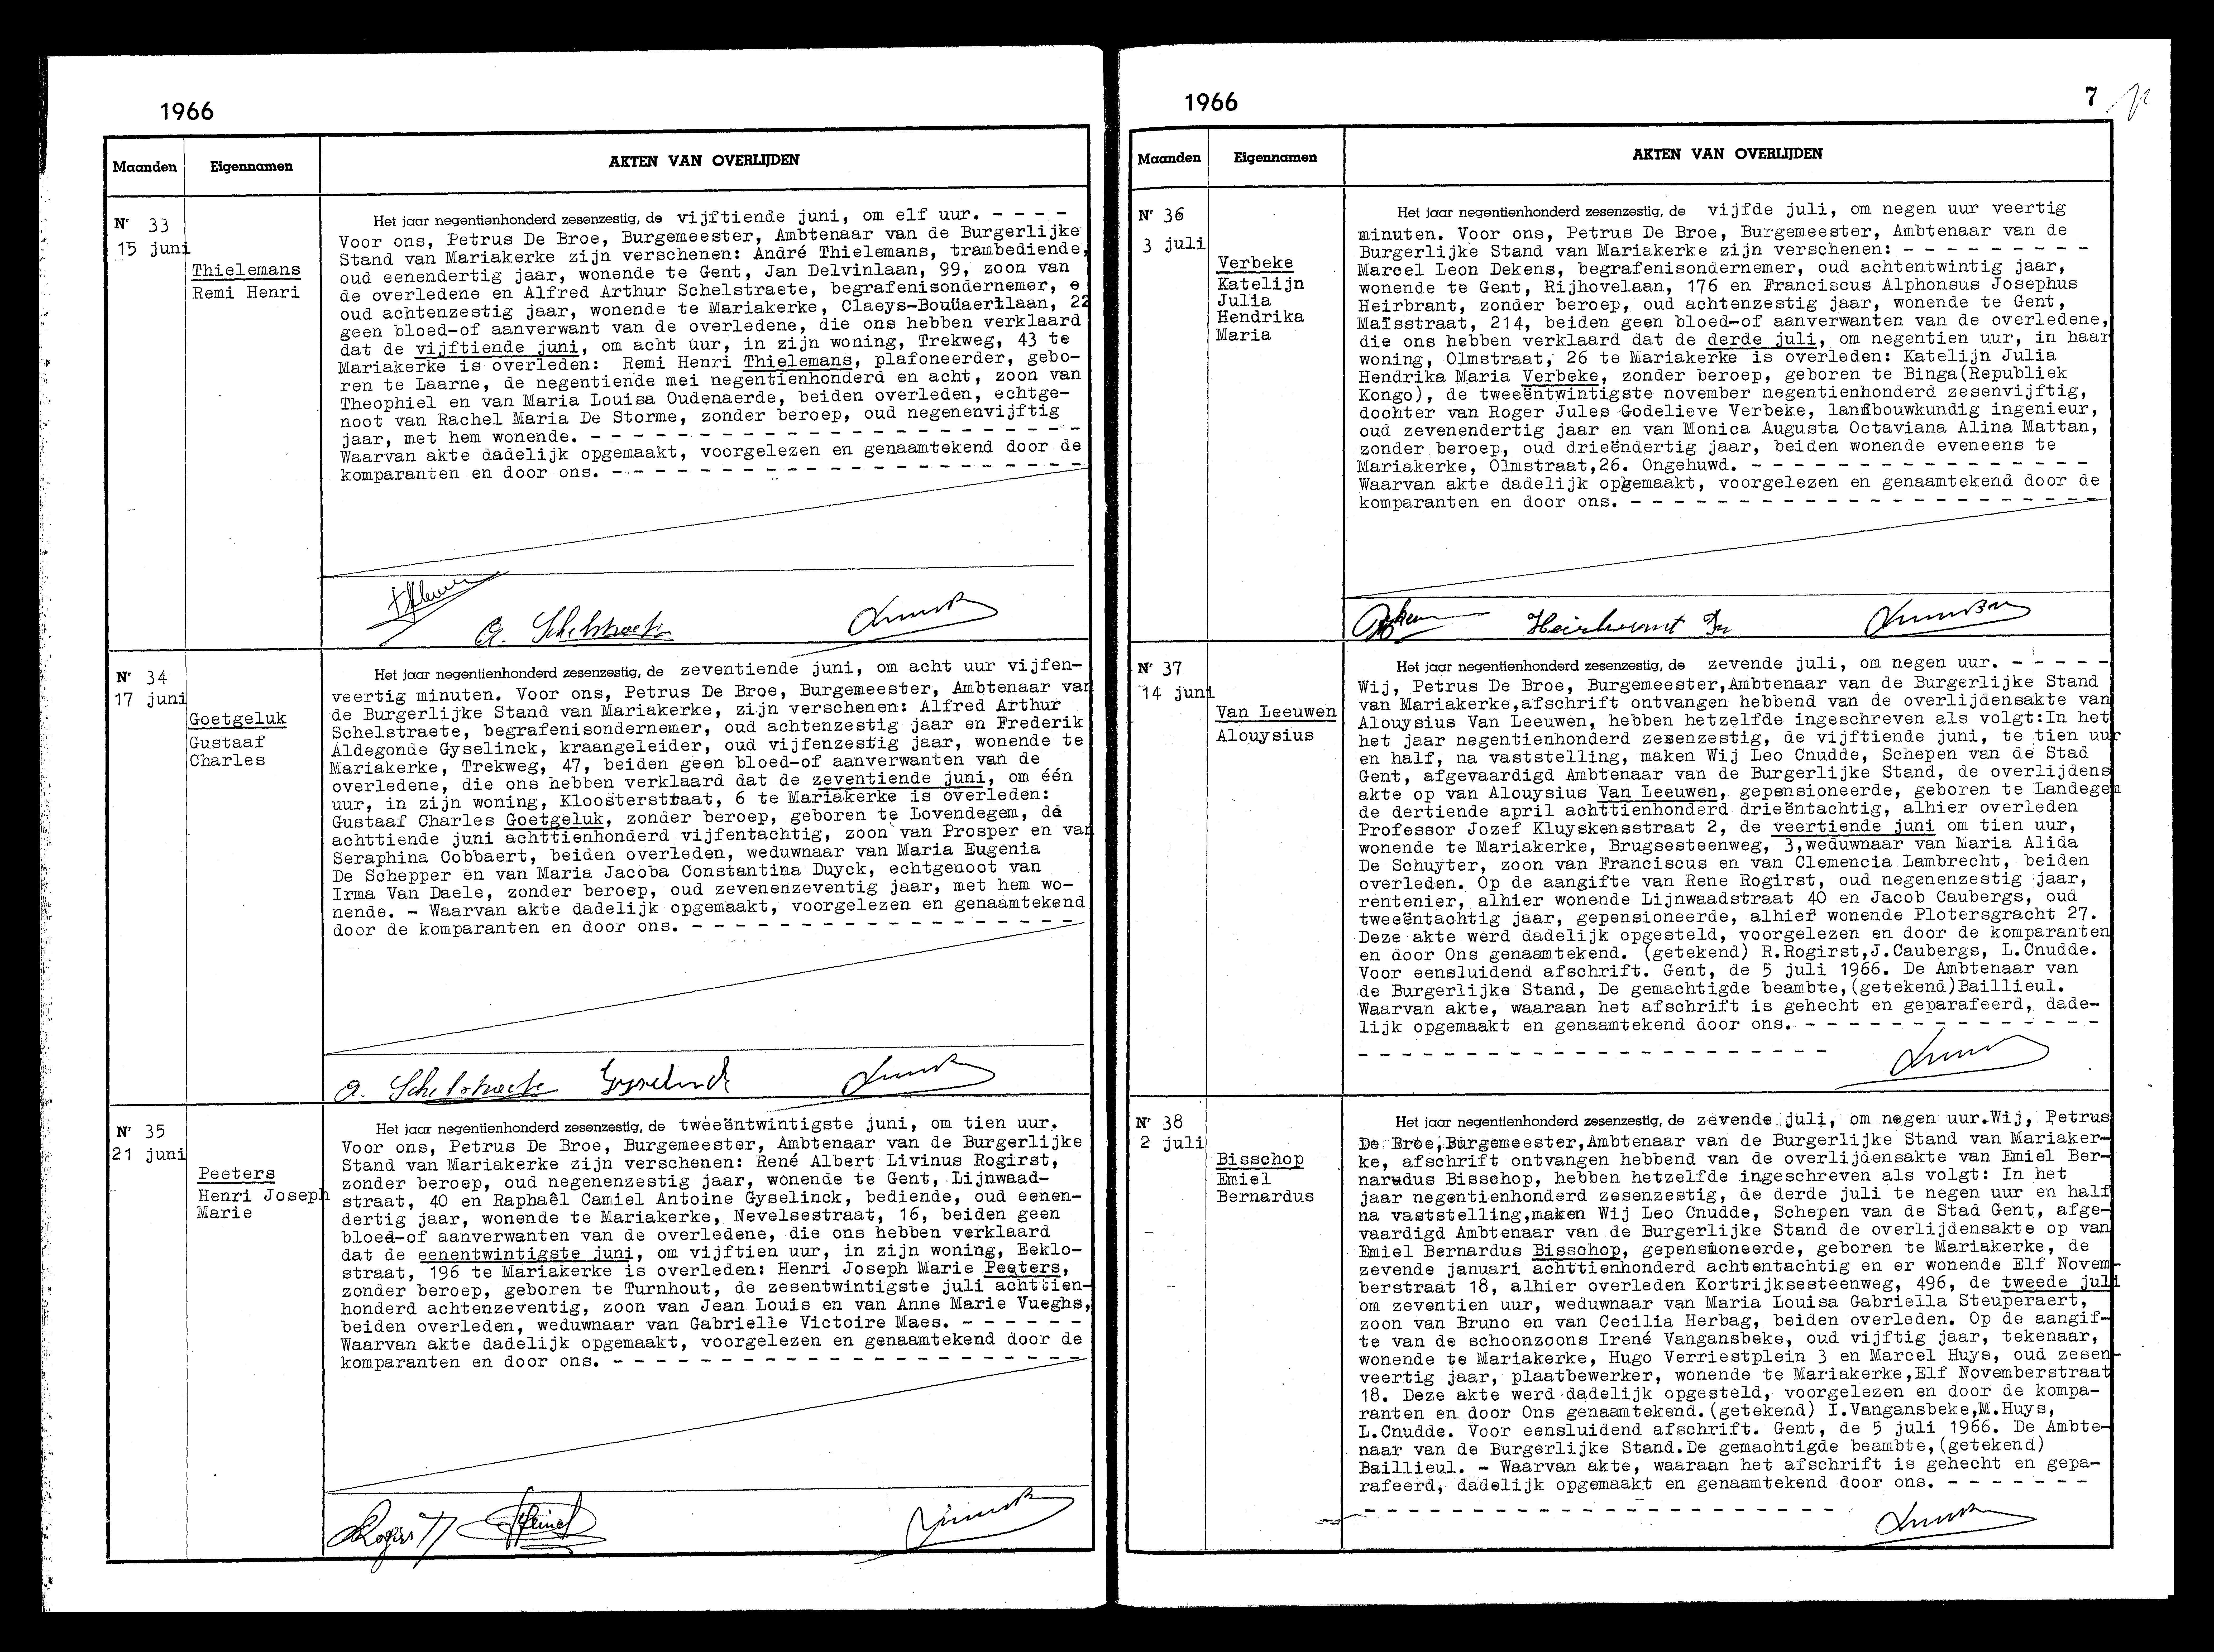 1966
Maanden Eigennamen AKTEN VAN OVERLIJDEN
Nr 33
15 juni
Thielemans
Remi Henri
Het jaar negentienhonderd zesenzestig, de vijftiende juni, om elf uur. - - - -
Voor ons, Petrus De Broe, Burgemeester, Ambtenaar van de Burgerlijke
Stand van Mariakerke zijn verschenen: André Thielemans, trambediende,
oud eenendertig jaar, wonende te Gent, Jan Delvinlaan, 99, zoon van
de overledene en Alfred Arthur Schelstraete, begrafenisondernemer,
oud achtenzestig jaar, wonende te Mariakerke, Claeys-Bouüaertlaan, 22
geen bloed-of aanverwant van de overledene, die ons hebben verklaard
dat de vijftiende juni, om acht uur, in zijn woning, Trekweg, 43 te
Mariakerke is overleden: Remi Henri Thielemans, plafoneerder, gebo-
ren te Laarne, de negentiende mei negentienhonderd en acht, zoon van
Theophiel en van Maria Louisa Oudenaerde, beiden overleden, echtge-
noot van Rachel Maria De Storme, zonder beroep, oud negenenvijftig
jaar, met hem wonende. - - - - - - - - - - - - - - - - - - - - - - -
Waarvan akte dadelijk opgemaakt, voorgelezen en genaamtekend door de
komparanten en door ons. - - - - - - - - - - - - - - - - - - - - - -
A. Schelstraete
Nr 34
17 juni
Goetgeluk
Gustaaf
Charles
Het jaar negentienhonderd zesenzestig, de zeventiende juni, om acht uur vijfen-
veertig minuten. Voor ons, Petrus De Broe, Burgemeester, Ambtenaar van
de Burgerlijke Stand van Mariakerke, zijn verschenen: Alfred Arthur
Schelstraete, begrafenisondernemer, oud achtenzestig jaar en Frederik
Aldegonde Gyselinck, kraangeleider, oud vijfenzestig jaar, wonende te
Mariakerke, Trekweg, 47, beiden geen bloed-of aanverwanten van de
overledene, die ons hebben verklaard dat de zeventiende juni, om één
uur, in zijn woning, Kloosterstraat, 6 te Mariakerke is overleden:
Gustaaf Charles Goetgeluk, zonder beroep, geboren te Lovendegem, de
achttiende juni achttienhonderd vijfentachtig, zoon van Prosper en van
Seraphina Cobbaert, beiden overleden, weduwnaar van Maria Eugenia
De Schepper en van Maria Jacoba Constantina Duyck, echtgenoot van
Irma Van Daele, zonder beroep, oud zevenenzeventig jaar, met hem wo-
nende. - Waarvan akte dadelijk opgemaakt, voorgelezen en genaamtekend
door de komparanten en door ons. - - - - - - - - - - - - - - - - - -
A. Schelstraete Gyselinck
Nr 35
21 juni
Peeters
Henri Joseph
Marie
Het jaar negentienhonderd zesenzestig, de tweeëntwintigste juni, om tien uur.
Voor ons, Petrus De Broe, Burgemeester, Ambtenaar van de Burgerlijke
Stand van Mariakerke zijn verschenen: René Albert Livinus Rogirst,
zonder beroep, oud negenenzestig jaar, wonende te Gent, Lijnwaad-
straat, 40 en Raphaêl Camiel Antoine Gyselinck, bediende, oud eenen-
dertig jaar, wonende te Mariakerke, Nevelsestraat, 16, beiden geen
bloed-of aanverwanten van de overledene, die ons hebben verklaard
dat de eenentwintigste juni, om vijftien uur, in zijn woning, Eeklo-
straat, 196 te Mariakerke is overleden: Henri Joseph Marie Peeters,
zonder beroep, geboren te Turnhout, de zesentwintigste juli achttien-
honderd achtenzeventig, zoon van Jean Louis en van Anne Marie Vueghs,
beiden overleden, weduwnaar van Gabrielle Victoire Maes. - - - - - -
Waarvan akte dadelijk opgemaakt, voorgelezen en genaamtekend door de
komparanten en door ons. - - - - - - - - - - - - - - - - - - - - - -
1966 7
Maanden Eigennamen AKTEN VAN OVERLIJDEN
Nr 36
3 juli
Verbeke
Katelijn
Julia
Hendrika
Maria
Het jaar negentienhonderd zesenzestig, de vijfde juli, om negen uur veertig
minuten. Voor ons, Petrus De Broe, Burgemeester, Ambtenaar van de
Burgerlijke Stand van Mariakerke zijn verschenen: - - - - - - - - -
Marcel Leon Dekens, begrafenisondernemer, oud achtentwintig jaar,
wonende te Gent, Rijhovelaan, 176 en Franciscus Alphonsus Josephus
Heirbrant, zonder beroep, oud achtenzestig jaar, wonende te Gent,
Maïsstraat, 214, beiden geen bloed-of aanverwanten van de overledene,
die ons hebben verklaard dat de derde juli, om negentien uur, in haar
woning, Olmstraat, 26 te Mariakerke is overleden: Katelijn Julia
Hendrika Maria Verbeke, zonder beroep, geboren te Binga(Republiek
Kongo), de tweeëntwintigste november negentienhonderd zesenvijftig,
dochter van Roger Jules Godelieve Verbeke, landbouwkundig ingenieur,
oud zevenendertig jaar en van Monica Augusta Octaviana Alina Mattan,
zonder beroep, oud drieëndertig jaar, beiden wonende eveneens te
Mariakerke, Olmstraat,26. Ongehuwd. - - - - - - - - - - - - - - - -
Waarvan akte dadelijk opgemaakt, voorgelezen en genaamtekend door de
komparanten en door ons. - - - - - - - - - - - - - - - - - - - - - -
Nr 37
14 juni
Van Leeuwen
Alouysius
Het jaar negentienhonderd zesenzestig, de zevende juli, om negen uur. - - - - -
Wij, Petrus De Broe, Burgemeester,Ambtenaar van de Burgerlijke Stand
van Mariakerke,afschrift ontvangen hebbend van de overlijdensakte van
Alouysius Van Leeuwen, hebben hetzelfde ingeschreven als volgt:In het
het jaar negentienhonderd zesenzestig, de vijftiende juni, te tien uur
en half, na vaststelling, maken Wij Leo Cnudde, Schepen van de Stad
Gent, afgevaardigd Ambtenaar van de Burgerlijke Stand, de overlijdens
akte op van Aloysius Van Leeuwen, gepensioneerde, geboren te Landegem
de dertiende april achttienhonderd drieëntachtig, alhier overleden
Professor Jozef Kluyskensstraat 2, de veertiende juni om tien uur,
wonende te Mariakerke, Brugsesteenweg, 3,weduwnaar van Maria Alida
De Schuyter, zoon van Franciscus en van Clemencia Lambrecht, beiden
overleden. Op de aangifte van Rene Rogirst, oud negenenzestig jaar,
rentenier, alhier wonende Lijnwaadstraat 40 en Jacob Caubergs, oud
tweeëntachtig jaar, gepensioneerde, alhier wonende Plotersgracht 27.
Deze akte werd dadelijk opgesteld, voorgelezen en door de komparanten
en door Ons genaamtekend. (getekend) R.Rogirst,J.Caubergs, L.Cnudde.
Voor eensluidend afschrift. Gent, de 5 juli 1966. De Ambtenaar van
de Burgerlijke Stand, De gemachtigde beambte,(getekend)Baillieul.
Waarvan akte, waaraan het afschrift is gehecht en geparafeerd, dade-
lijk opgemaakt en genaamtekend door ons. - - - - - - - - - - - - - -
- - - - - - - - - - - - - - - - - - - - - -
Nr 38
2 juli
Bisschop
Emiel
Bernardus
Het jaar negentienhonderd zesenzestig, de zevende juli, om negen uur.Wij, Petrus
De Broe,Burgemeester,Ambtenaar van de Burgerlijke Stand van Mariaker-
ke, afschrift ontvangen hebbend van de overlijdensakte van Emiel Ber-
narudus Bisschop, hebben hetzelfde ingeschreven als volgt: In het
jaar negentienhonderd zesenzestig, de derde juli te negen uur en half
na vaststelling,maken Wij Leo Cnudde, Schepen van de Stad Gent, afge-
vaardigd Ambtenaar van de Burgerlijke Stand de overlijdensakte op van
Emiel Bernardus Bisschop, gepensioneerde, geboren te Mariakerke, de
zevende januari achttienhonderd achtentachtig en er wonende Elf Novem-
berstraat 18, alhier overleden Kortrijksesteenweg, 496, de tweede juli
om zeventien uur, weduwnaar van Maria Louisa Gabriella Steuperaert,
zoon van Bruno en van Cecilia Herbag, beiden overleden. Op de aangif-
te van de schoonzoons Irené Vangansbeke, oud vijftig jaar, tekenaar,
wonende te Mariakerke, Hugo Verriestplein 3 en Marcel Huys, oud zesen-
veertig jaar, plaatbewerker, wonende te Mariakerke,Elf Novemberstraat
18. Deze akte werd dadelijk opgesteld, voorgelezen en door de kompa-
ranten en door Ons genaamtekend.(getekend) I.Vangansbeke,M.Huys,
L.Cnudde. Voor eensluidend afschrift. Gent, de 5 juli 1966. De Ambte-
naar van de Burgerlijke Stand.De gemachtigde beambte,(getekend)
Baillieul. - Waarvan akte, waaraan het afschrift is gehecht en gepa-
rafeerd, dadelijk opgemaakt en genaamtekend door ons. - - - - - - -
- - - - - - - - - - - - - - - - - - - - - -